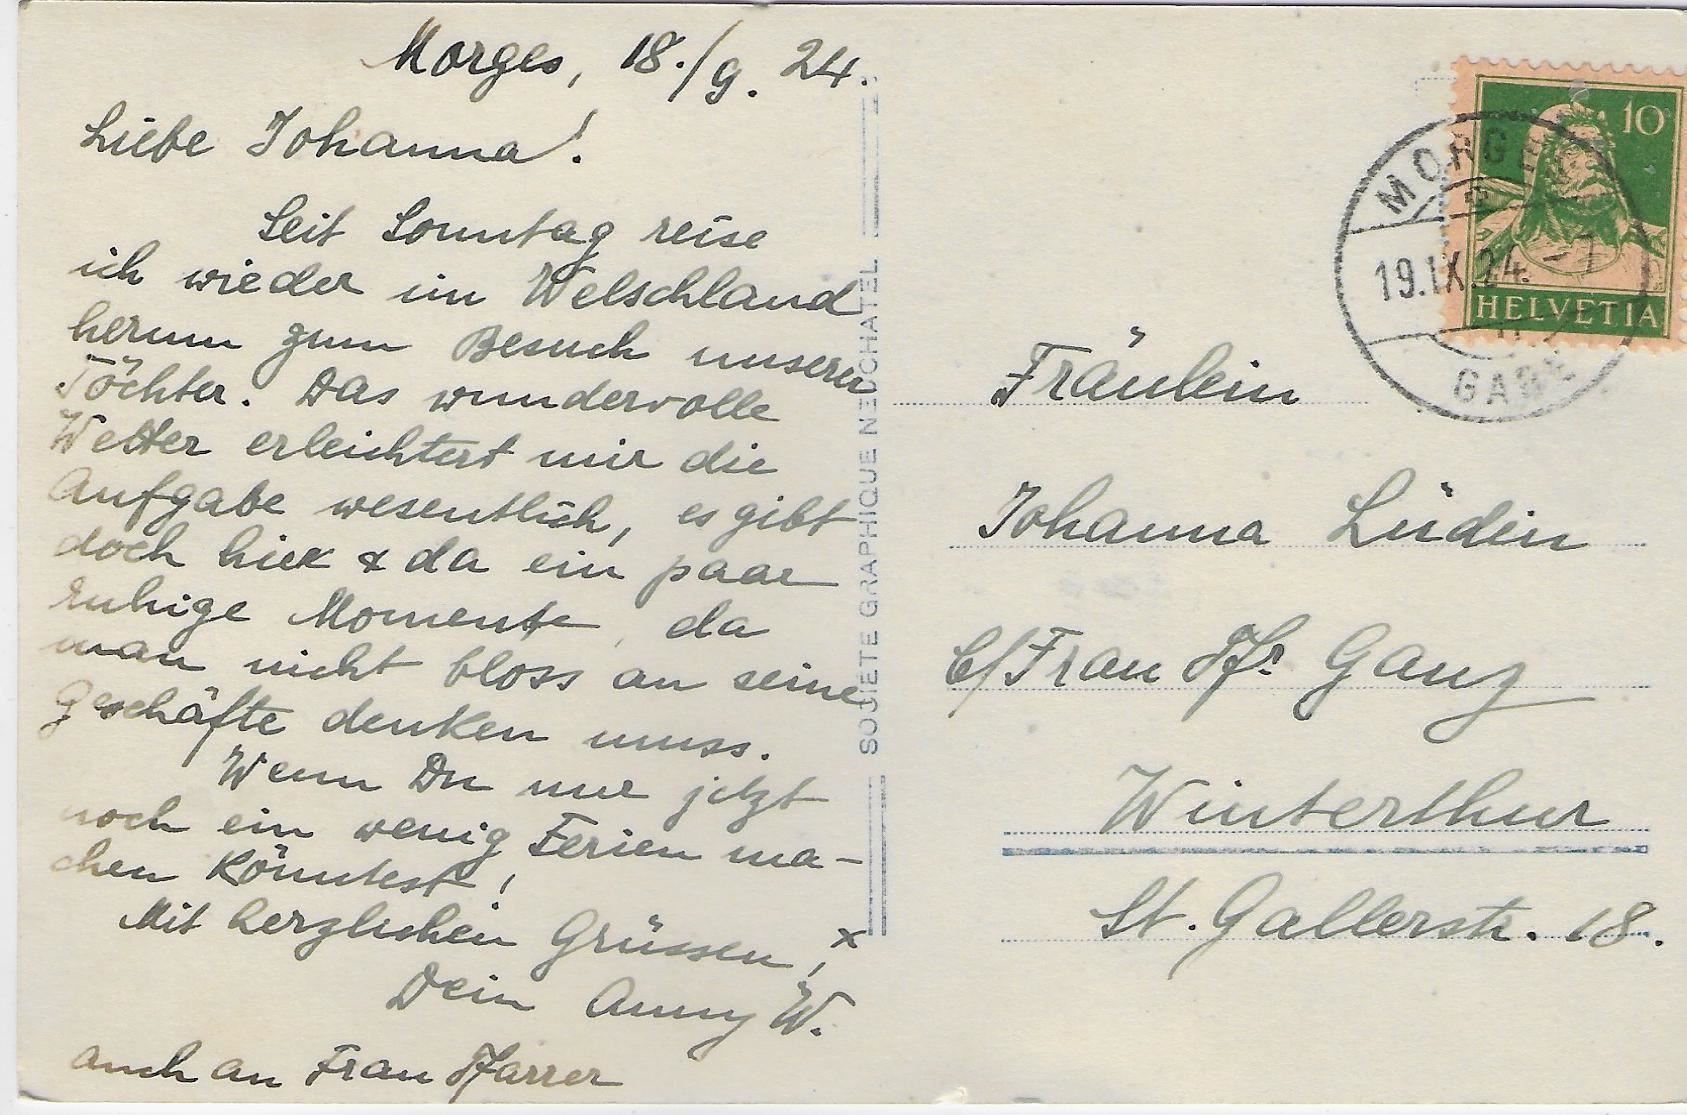 Morges, 18./9. 24.
Liebe Johanna!
Seit Sonntag reise
ich wieder im Welschland
herum zum Besuch unserer
Töchter. Das wundervolle
Wetter erleichtert mir die
Aufgabe wesentlich, es gibt
doch hier & da ein paar
ruhige Momente, da
man nicht bloss an seine
Geschäfte denken muss.
Wenn Du nur jetzt
noch ein wenig Ferien ma-
chen könntest!
Mit herzlichen Grüssen, x
Dein Anny W.
x auch an Frau Pfarrer
SOCIETE GRAPHIQUE NEUCHATEL
10
HELVETIA
MORGES
19.IX.24.-7
GARE
Fräulein
Johanna Lüdin
b/Frau Pfr Ganz
Winterthur
St. Gallerstr. 18.